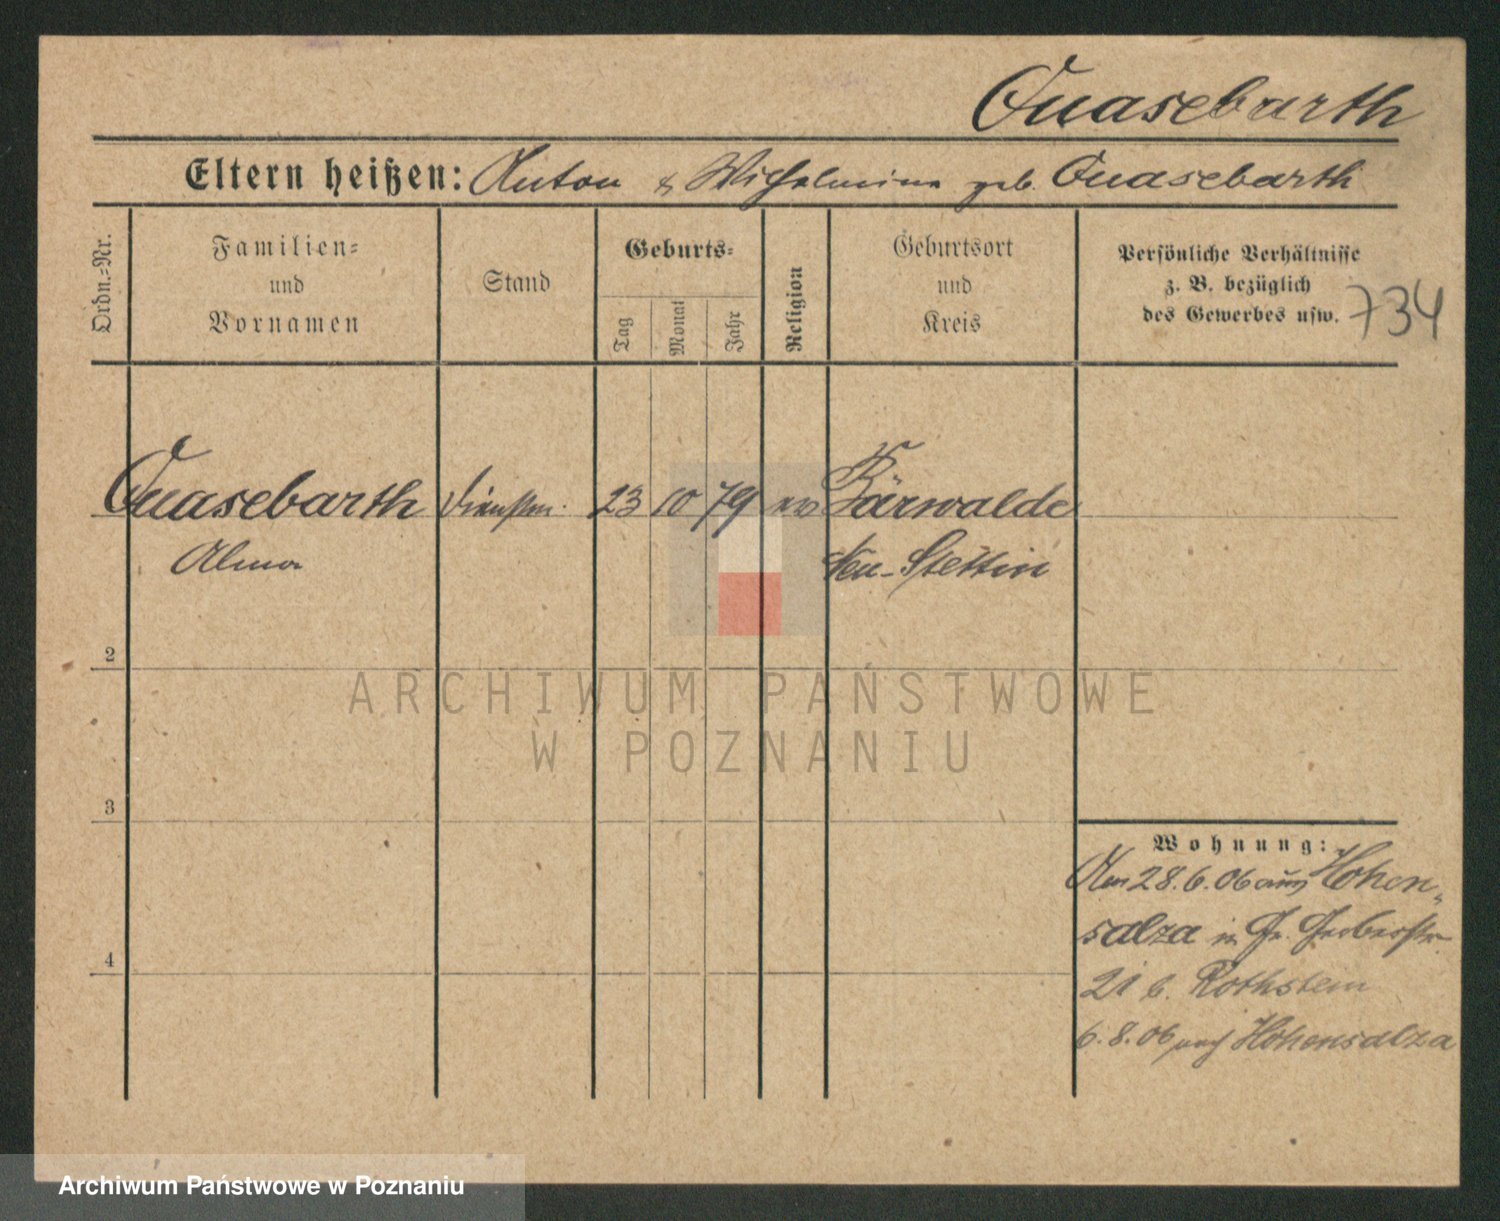 Quasebarth
Eltern heißen: Anton & Wilhelmina geb. Quasebarth
Ordn.-Nr.
Familien-
und
Vornamen
Stand
Geburts-
Tag
Monat
Jahr
Religion
Geburtsort
und
Kreis
Persönliche Verhältnisse
z. B. bezüglich
des Gewerbes usw.
734
Quasebarth 23 10 79 ev Bärwalde
Alma Neu-Stettin
2
3
4
Wohnung:
28.6.06 aus Hohen-
salza in Gr. Gerberstr
21 b. Rothstein
6.8.06 nach Hohensalza
ARCHIWUM PAŃSTWOWE
W POZNANIU
Archiwum Państwowe w Poznaniu